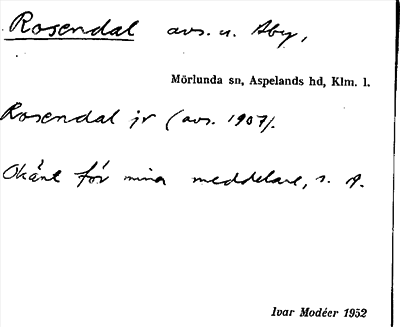 Rosendal avs. u. Åby,
Mörlunda sn, Aspelands hd, Klm. l.
Rosendal jr (avs. 1907).
Okänt för mina meddelare, s. A.
Ivar Modéer 1952